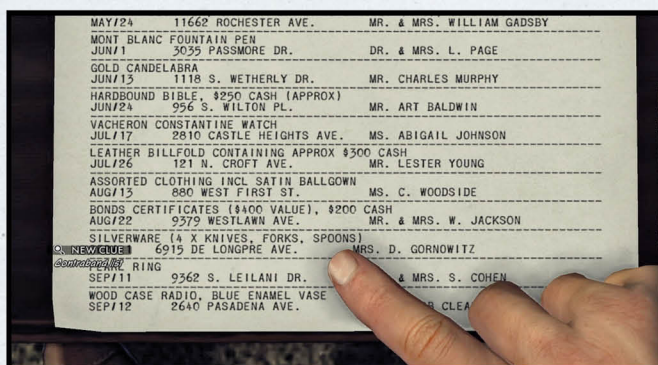 MAY/24 11662 ROCHESTER AVE. MR. & MRS. WILLIAM GADSBY
MONT BLANC FOUNTAIN PEN
JUN/1 3035 PASSMORE DR. DR. & MRS. L. PAGE
GOLD CANDELABRA
JUN/13 1118 S. WETHERLY DR. MR. CHARLES MURPHY
HARDBOUND BIBLE, $250 CASH (APPROX)
JUN/24 956 S. WILTON PL. MR. ART BALDWIN
VACHERON CONSTANTINE WATCH
JUL/17 2810 CASTLE HEIGHTS AVE. MS. ABIGAIL JOHNSON
LEATHER BILLFOLD CONTAINING APPROX $300 CASH
JUL/26 121 N. CROFT AVE. MR. LESTER YOUNG
ASSORTED CLOTHING INCL SATIN BALLGOWN
AUG/13 880 WEST FIRST ST. MS. C. WOODSIDE
BONDS CERTIFICATES ($400 VALUE), $200 CASH
AUG/22 9379 WESTLAWN AVE. MR. & MRS. W. JACKSON
SILVERWARE (4 X KNIVES, FORKS, SPOONS)
NEW CLUE 6915 DE LONGPRE AVE. MRS. D. GORNOWITZ
Contraband list
PEARL RING
SEP/11 9362 S. LEILANI DR. & MRS. S. COHEN
WOOD CASE RADIO, BLUE ENAMEL VASE
SEP/12 2640 PASADENA AVE.